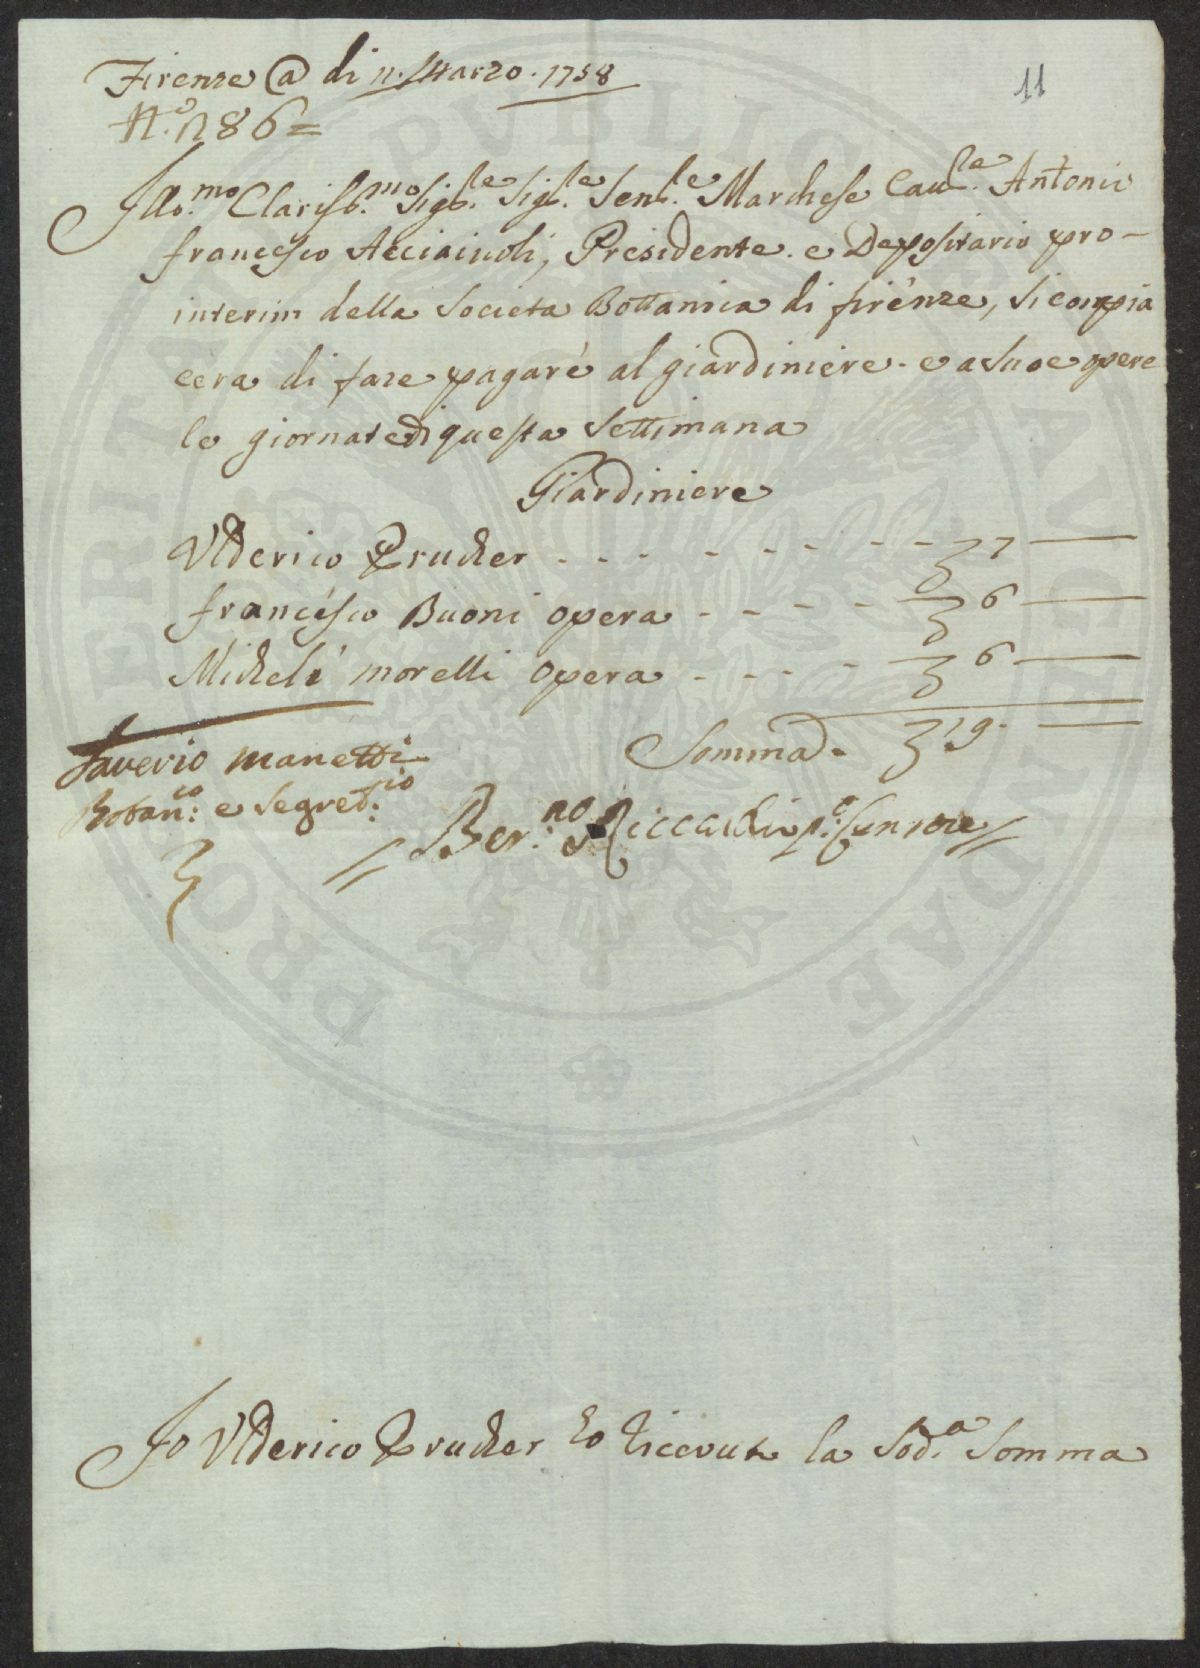 11
Firenze @ di 11. Marzo. 1758
N.o 186=
Illo.mo Clariss.mo Sig.le Sig.le Sen.le Marchese Cau.le Antonio
francesco Acciaiuoli, Presidente. e Depositario pro-
interim della Societa Bottanica di firenze, si compia
cera di fare pagare al giardiniere. e a sue opere
le giornate di questa Settimana
Giardiniere
Vlderico Prucker - - - - - - - - 7 —
francesco Buoni opera - - - - 6 —
Micheli morelli opera - - - - 6 —
Somma - 19. —
Saverio Manetti
Botan.co e Segret.rio
// Ber.no Riccardi p.o Censore //
PROSPERITATI PVBLICAE AVGENDAE
Io Vlderico Prucker ho ricevuto la Sod.a Somma